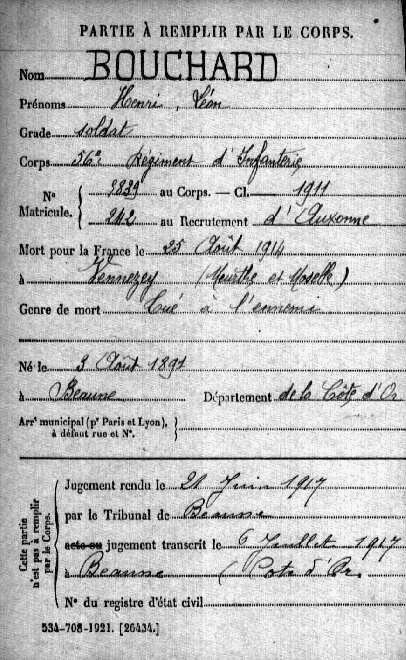 PARTIE À REMPLIR PAR LE CORPS.
Nom BOUCHARD
Prénoms Henri, Léon
Grade soldat
Corps 56e Régiment d'Infanterie
N° Matricule. { 3839 au Corps. — Cl. 1911
242 au Recrutement d'Auxonne
Mort pour la France le 25 Août 1914
à Vennezey (Meurthe et Moselle)
Genre de mort Tué à l'ennemi
Né le 3 Août 1891
à Beaune Département de la Côte d'Or
Arrt municipal (pr Paris et Lyon), à défaut rue et N°. }
Cette partie n'est pas à remplir par le Corps.
Jugement rendu le 21 Juin 1917
par le Tribunal de Beaune
acte ou jugement transcrit le 6 Juillet 1917
à Beaune (Cote d'Or.
N° du registre d'état civil
534-708-1921. [26434.]